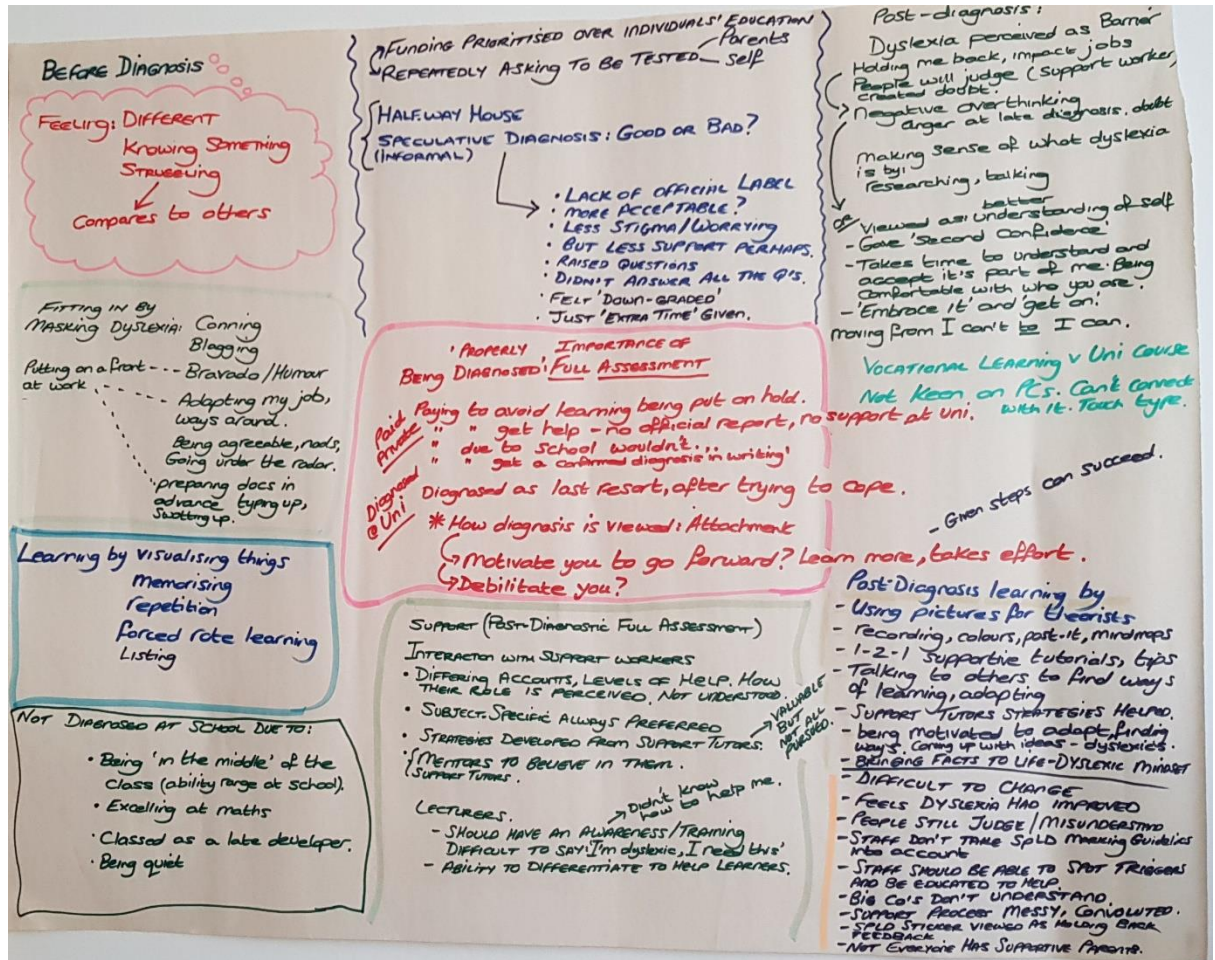 BEFORE DIAGNOSIS
FEELING: DIFFERENT
KNOWING SOMETHING
STRUGGLING
Compares to others
FITTING IN BY
MASKING DYSLEXIA: Conning
Blagging
Putting on a front --- Bravado/Humour
at work
Adapting my job,
ways around.
Being agreeable, nods,
Going under the radar.
preparing docs in
advance typing up,
Swotting up.
Learning by visualising things
memorising
repetition
forced rote learning
Listing
NOT DIAGNOSED AT SCHOOL DUE TO:
• Being 'in the middle' of the
class (ability range at school).
• Excelling at maths
• Classed as a late developer.
• Being quiet
FUNDING PRIORITISED OVER INDIVIDUALS' EDUCATION
REPEATEDLY ASKING TO BE TESTED
Parents
self
HALF-WAY HOUSE
SPECULATIVE DIAGNOSIS: GOOD OR BAD?
(INFORMAL)
• LACK OF OFFICIAL LABEL
• MORE ACCEPTABLE?
• LESS STIGMA/WORRYING
• BUT LESS SUPPORT PERHAPS.
• RAISED QUESTIONS
• DIDN'T ANSWER ALL THE Q'S.
• FELT 'DOWN-GRADED'
• JUST 'EXTRA TIME' GIVEN.
'PROPERLY IMPORTANCE OF
BEING DIAGNOSED': FULL ASSESSMENT
Paid
Private
Paying to avoid learning being put on hold.
" " get help - no official report, no support at uni.
" due to school wouldn't...
" " get a confirmed diagnosis in writing'
Diagnosed
@ Uni
Diagnosed as last resort, after trying to cope.
* How diagnosis is viewed: Attachment
Motivate you to go forward? Learn more, takes effort.
Debilitate you?
SUPPORT (POST-DIAGNOSTIC FULL ASSESSMENT)
INTERACTION WITH SUPPORT WORKERS
• DIFFERING ACCOUNTS, LEVELS OF HELP. HOW
THEIR ROLE IS PERCEIVED. NOT UNDERSTOOD.
• SUBJECT-SPECIFIC ALWAYS PREFERRED
• STRATEGIES DEVELOPED FROM SUPPORT TUTORS.
VALUABLE
BUT
NOT ALL
PURSUED.
• MENTORS TO BELIEVE IN THEM.
SUPPORT TUTORS.
LECTURERS.
Didn't know
how to help me.
- SHOULD HAVE AN AWARENESS/TRAINING
DIFFICULT TO SAY 'I'm dyslexic, I need this'
- ABILITY TO DIFFERENTIATE TO HELP LEARNERS.
Post-diagnosis:
Dyslexia perceived as Barrier
Holding me back, impact jobs
People will judge (support worker)
created doubt.
Negative overthinking
anger at late diagnosis. doubt
making sense of what dyslexia
is by:
researching, talking
better
or Viewed as: understanding of self
- Gave 'Second Confidence'
- Takes time to understand and
accept it's part of me. Being
comfortable with who you are.
- 'Embrace it' and 'get on'.
moving from I can't to I can.
VOCATIONAL LEARNING V UNI COURSE
Not Keen on PCs. Can't connect
with it. Touch type.
- Given steps can succeed.
Post-Diagnosis learning by
- Using pictures for theorists
- recording, colours, post-it, mindmaps
- 1-2-1 supportive tutorials, tips
- Talking to others to find ways
of learning, adapting
- SUPPORT TUTORS STRATEGIES HELPED.
- being motivated to adapt, finding
ways. Coming up with ideas - dyslexics.
- BRINGING FACTS TO LIFE - DYSLEXIC MINDSET
- DIFFICULT TO CHANGE
- FEELS DYSLEXIA HAD IMPROVED
- PEOPLE STILL JUDGE / MISUNDERSTAND
- STAFF DON'T TAKE SPLD MARKING GUIDELINES
into account
- STAFF SHOULD BE ABLE TO SPOT TRIGGERS
AND BE EDUCATED TO HELP.
- BIG CO'S DON'T UNDERSTAND.
- SUPPORT PROCESS MESSY, CONVOLUTED.
- SPLD STICKER VIEWED AS HOLDING BACK
FEEDBACK
- NOT EVERYONE HAS SUPPORTIVE PARENTS.